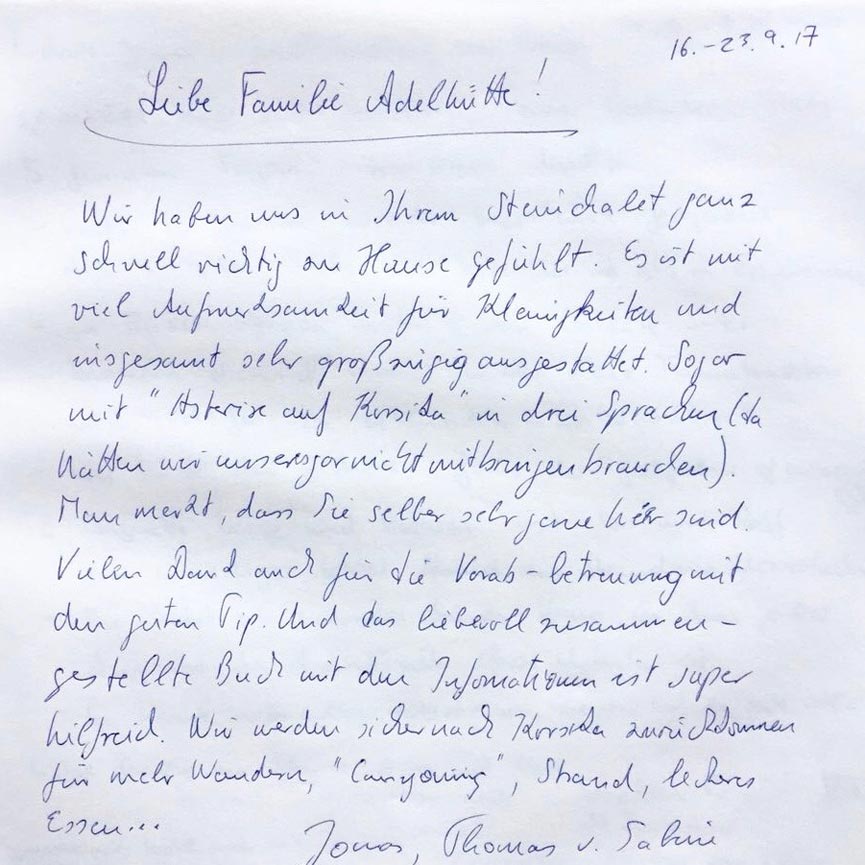 16.-23.9.17
Liebe Familie Adelhütte!
Wir haben uns in Ihrem Steinchalet ganz
schnell richtig zu Hause gefühlt. Es ist mit
viel Aufmerksamkeit für Kleinigkeiten und
insgesamt sehr großzügig ausgestattet. Sogar
mit "Asterix auf Korsika" in drei Sprachen (da
hätten wir unseres gar nicht mitbringen brauchen).
Man merkt, dass Sie selber sehr gerne hier sind.
Vielen Dank auch für die Vorab-betreuung mit
den guten Tip. Und das liebevoll zusammen-
gestellte Buch mit den Informationen ist super
hilfreich. Wir werden sicher nach Korsika zurückkommen
für mehr Wandern, "Canyoning", Strand, leckeres
Essen...
Jonas, Thomas u. Sabine